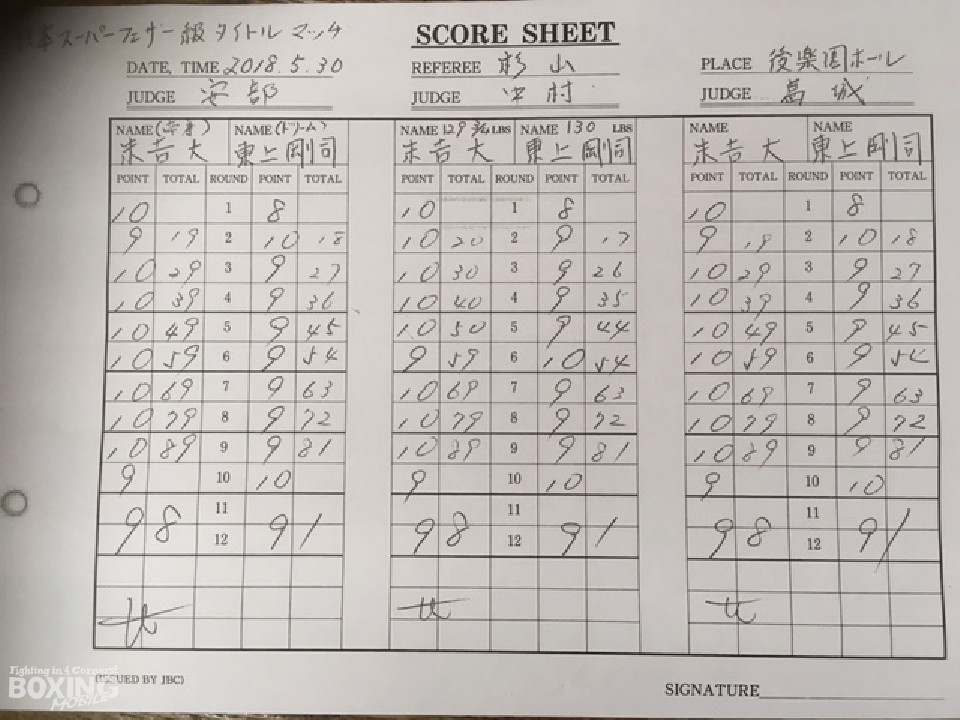 日本スーパーフェザー級タイトルマッチ
SCORE SHEET
DATE, TIME 2018.5.30 REFEREE 杉山 PLACE 後楽園ホール
JUDGE 安部 JUDGE 中村 JUDGE 葛城
NAME NAME (ドリーム) NAME 129 3/4 LBS NAME 130 LBS NAME NAME
末吉大 東上剛司 末吉大 東上剛司 末吉大 東上剛司
POINT TOTAL ROUND POINT TOTAL POINT TOTAL ROUND POINT TOTAL POINT TOTAL ROUND POINT TOTAL
10 1 8 10 1 8 10 1 8
9 19 2 10 18 10 20 2 9 17 9 19 2 10 18
10 29 3 9 27 10 30 3 9 26 10 29 3 9 27
10 39 4 9 36 10 40 4 9 35 10 39 4 9 36
10 49 5 9 45 10 50 5 9 44 10 49 5 9 45
10 59 6 9 54 9 59 6 10 54 10 59 6 9 54
10 69 7 9 63 10 69 7 9 63 10 69 7 9 63
10 79 8 9 72 10 79 8 9 72 10 79 8 9 72
10 89 9 9 81 10 89 9 9 81 10 89 9 9 81
9 10 10 9 10 10 9 10 10
98 11 91 98 11 91 98 11 91
12 12 12
(ISSUED BY JBC)
SIGNATURE
Fighting in 4 Corners!
BOXING
MOBILE